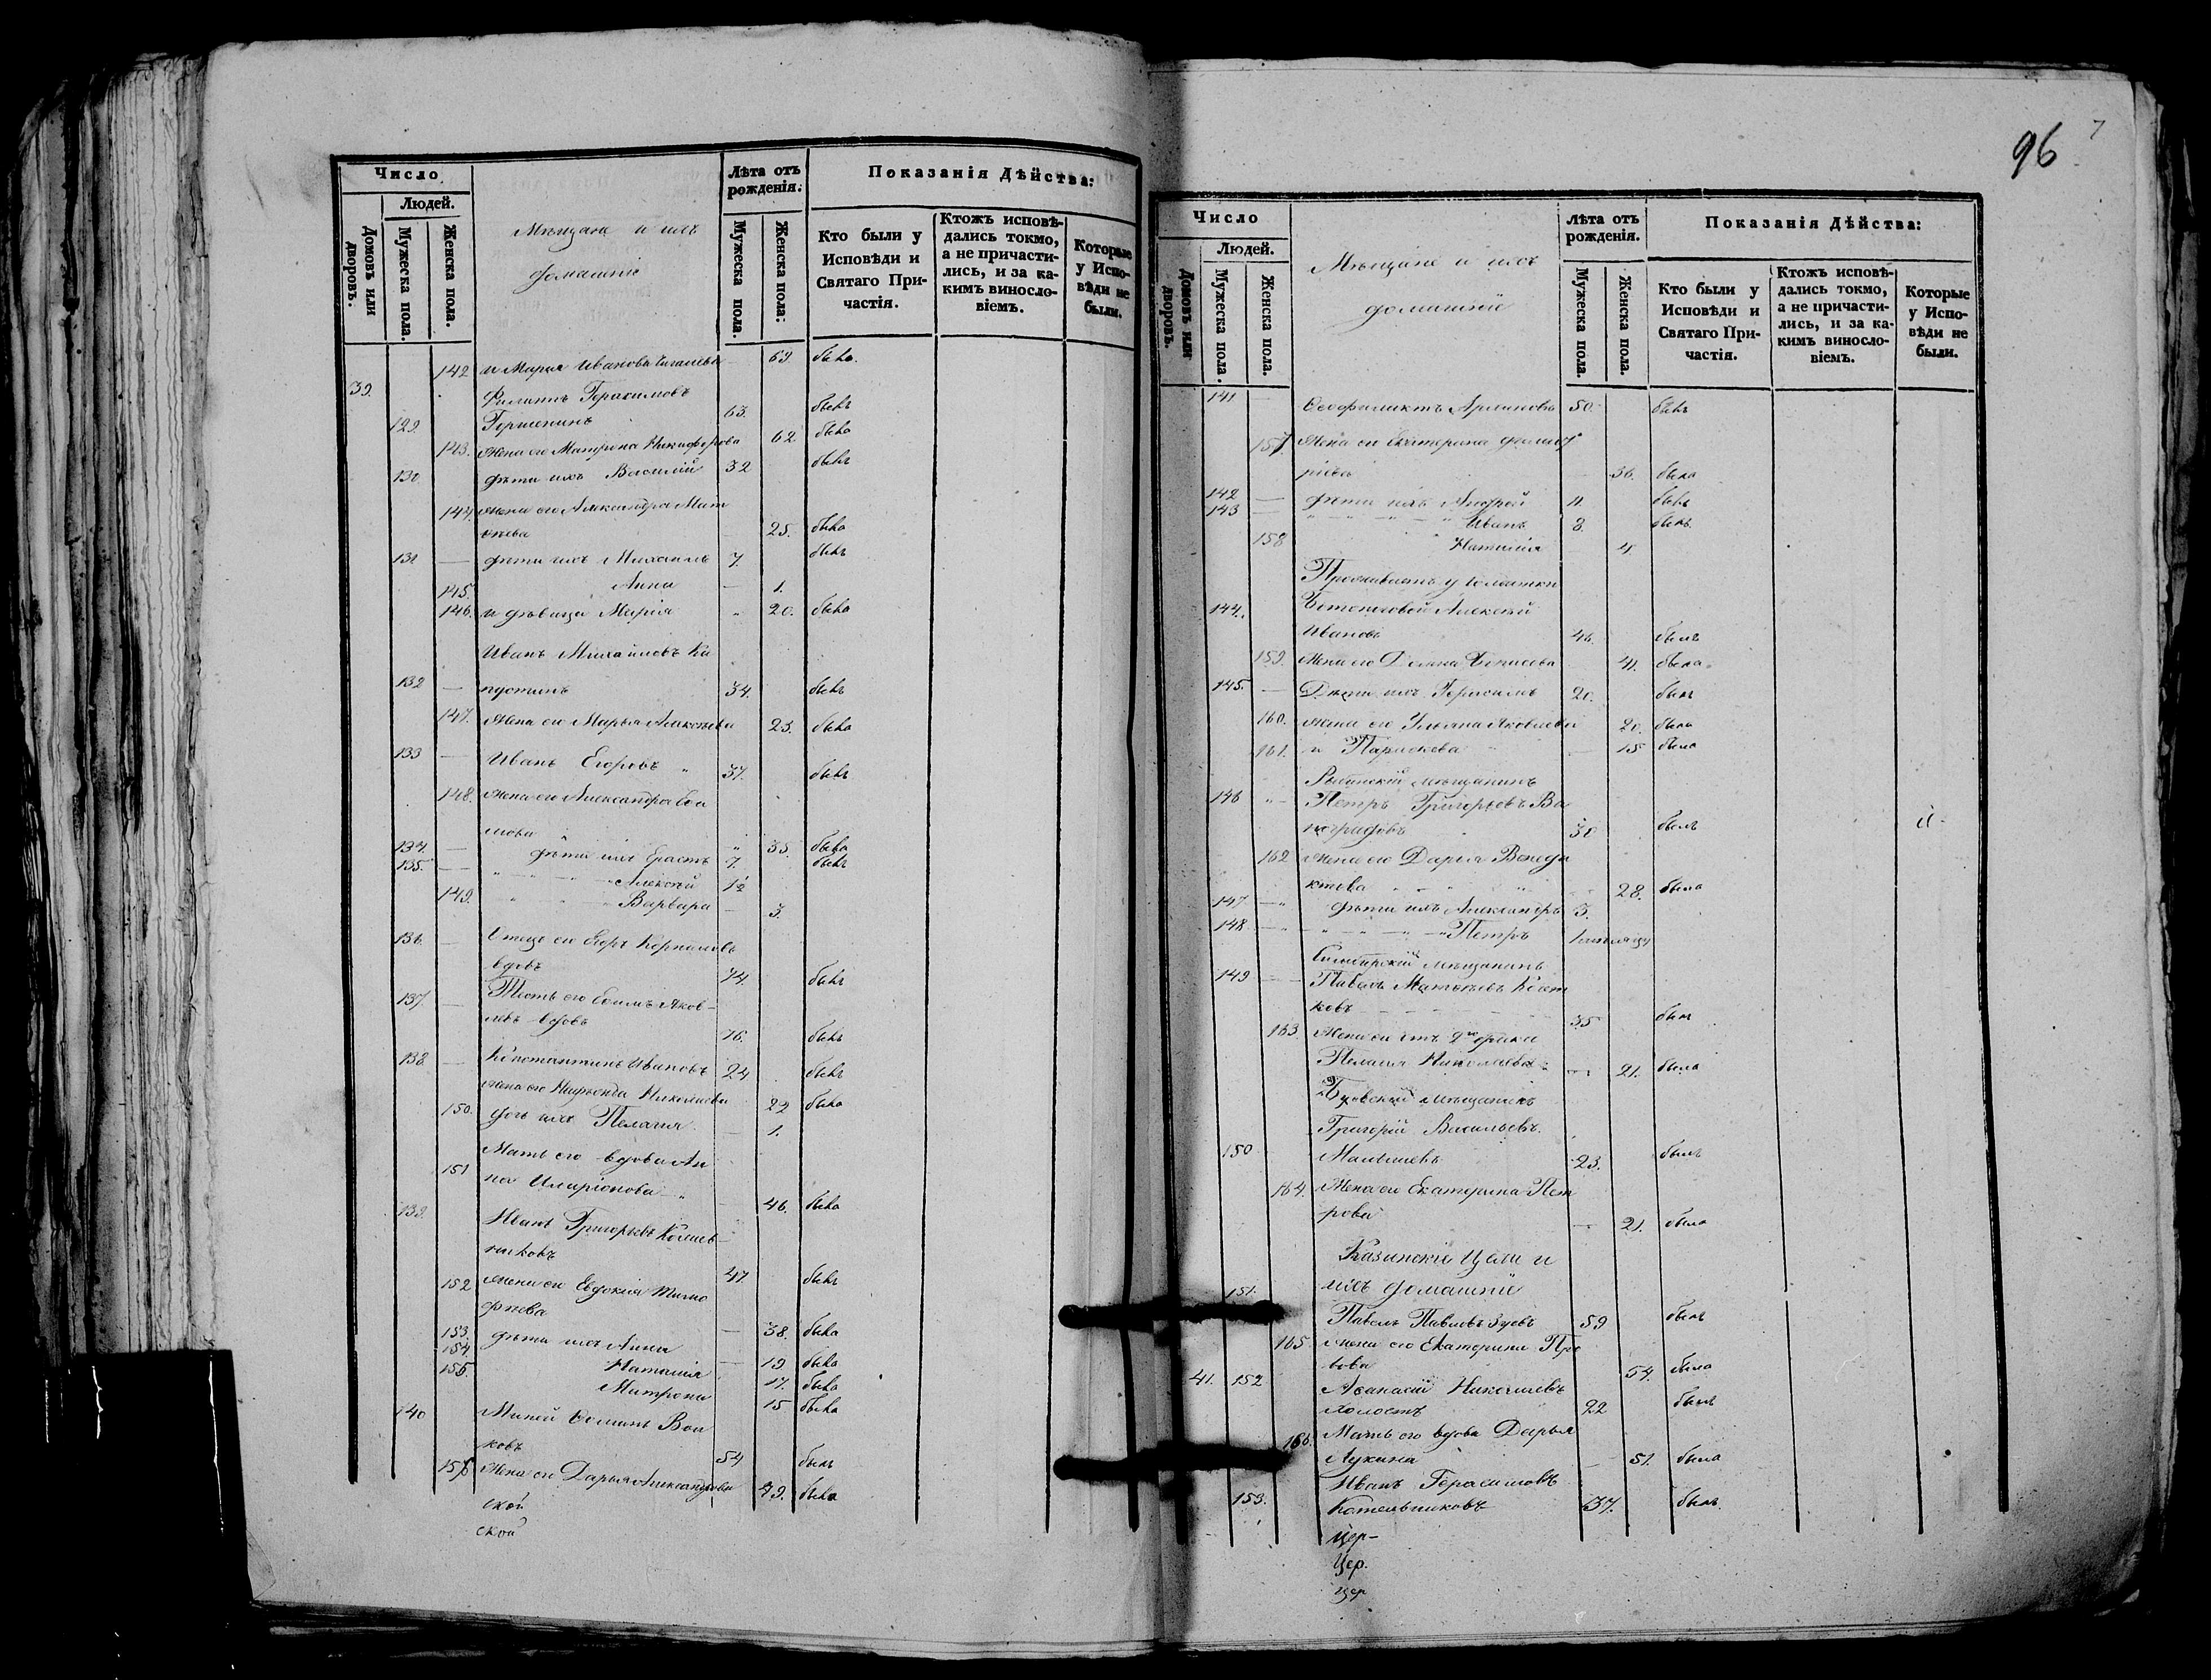 Число
Людей.
Домовъ или дворовъ.
Мужеска пола.
Женска пола.
Мѣщане и ихъ
домашніе
Лѣта отъ рожденія:
Мужеска пола.
Женска пола:
Показанія Дѣйства:
Кто были у Исповѣди и Святаго Причастія.
Ктожъ исповѣдались токмо, а не причастились, и за какимъ винословіемъ.
Которые у Исповѣди не были.
142 и Марья Иванова 69 была.
39. Филиппъ Герасимовъ
129. 63. былъ
143. Жена его Матрона Никифорова 62 была
130 дѣти ихъ Василій 32 былъ
144. жена его Александра Мат
вѣева 25. была
131 — дѣти ихъ Михаилъ 7. былъ
145. Анна — 1.
146. и дѣвица Марія 20. была
Иванъ Михайловъ Ка
132 — пустинъ 34. былъ
147. Жена его Марья Алексѣева 23. была
133 — Иванъ Егоровъ 37. былъ
148. Жена его Александра
35. была
134. — дѣти ихъ Ерастъ 7. былъ
135. — Алексѣй 1½
149. Варвара — 3.
136. — Отецъ его Егоръ Корниловъ
вдовъ 74. былъ
137. — Тесть его Ефимъ Яков-
левъ вдовъ 76. былъ
138. — Константинъ Ивановъ 24 былъ
жена его Николаева 22 была
150. дочь ихъ Пелагея — 1.
Мать его вдова Ан
151 на Иларіонова 46. была
139. Иванъ Григорьевъ
47 былъ
152 жена его Евдокія Тимо
фѣева — 38. была
153. дѣти ихъ Анна — 19 была
154. Наталія 17. была
155. Матрона 15 была
140 Миней Фоминъ Вол
ковъ 54 былъ
156 Жена его Дарья Александрова 49. была
ской
ской
96
7
Число
Людей.
Домовъ или дворовъ.
Мужеска пола.
Женска пола.
Мѣщане и ихъ
домашніе
Лѣта отъ рожденія.
Мужеска пола.
Женска пола.
Показанія Дѣйства:
Кто были у Исповѣди и Святаго Причастія.
Ктожъ исповѣдались токмо, а не причастились, и за какимъ винословіемъ.
Которые у Исповѣди не были.
141 Ѳеофилактъ 50. былъ
157 Жена его Екатерина Дмит
ріева 36. была
142 — дѣти ихъ Андрей 11. былъ
143 — Иванъ 8. былъ
158 Наталія — 4
Проживаетъ у солдатки
144. Алексѣй
Ивановъ 46. былъ
159. Жена его Домна Борисова 41. была
145. — Дѣти ихъ Герасимъ 20. былъ
160. жена его Ульяна Яковлева 20. была
161. и Параскева — 15 была
Рыбинскій мѣщанинъ
146 Петръ Григорьевъ Ви
ноградовъ 30 былъ
162 Жена его Дарья Венеди
ктова 28. была
147 — дѣти ихъ Александръ 3.
148 — Петръ 1 мѣсяцъ
Симбирскій мѣщанинъ
149 — Павелъ Матвѣевъ
ковъ 35 былъ
163. Жена его отъ 2го брака
Пелагея Николаева — 21. была
мѣщанинъ
Григорій Васильевъ
150 Малышевъ 23. былъ
164. Жена его Екатерина Пет
рова — 21. была
Казанскіе и
ихъ домашніе
151. Павелъ Павловъ Зуевъ 59 былъ
165 жена его Екатерина
54. была
41. 152 Аѳанасій Николаевъ
холостъ 22 былъ
166. Мать его вдова Дарья
Лукина — 51. была
Иванъ Герасимовъ
153. Котельниковъ 37. былъ.
Цер-
Цер.
Цер